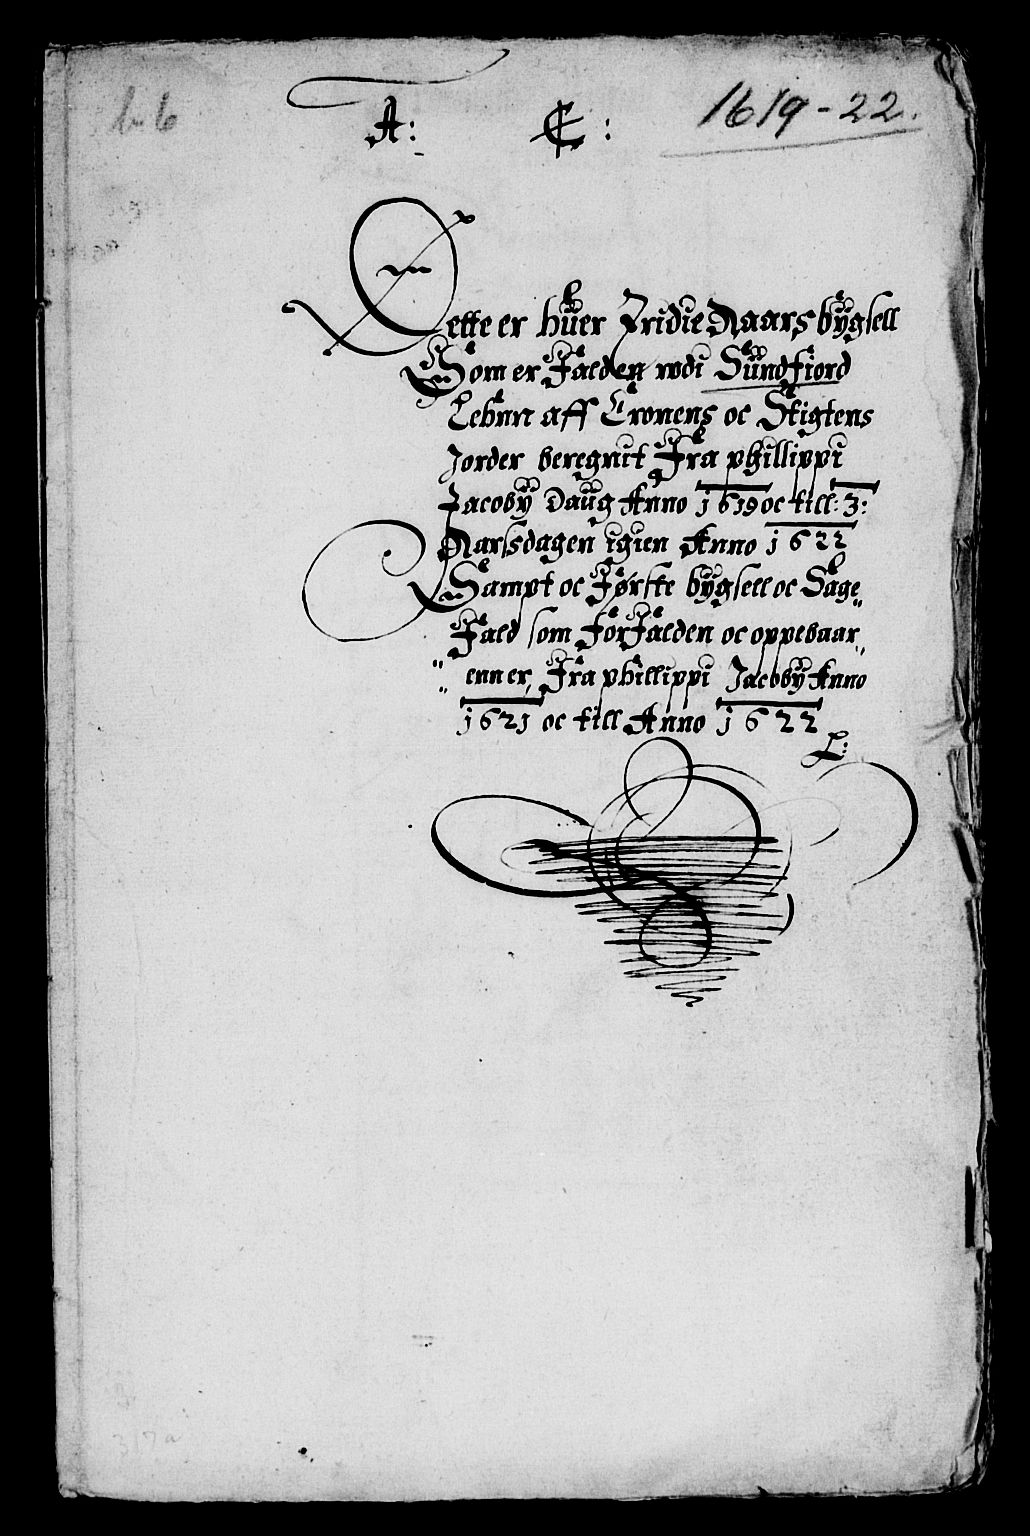 b. 6
1619-22.
A: C:
Dette er huer Tridie Aaars bÿgsell
Som er Falden wdi Sündfiord
Lehnn aff Cronens oc Stigtens
Jorder beregnit Fra phillippi
Jacobÿ Daüg Anno 1619 oc till: 3:
Aarsdagen igien Anno 1622
Sampt oc Første bÿgsell oc Sage„
Fald som ForFalden oc oppebaar„
„ enn er, Fra phillippi Jacobÿ Anno
„
1621 oc till Anno 1622
L:
317a